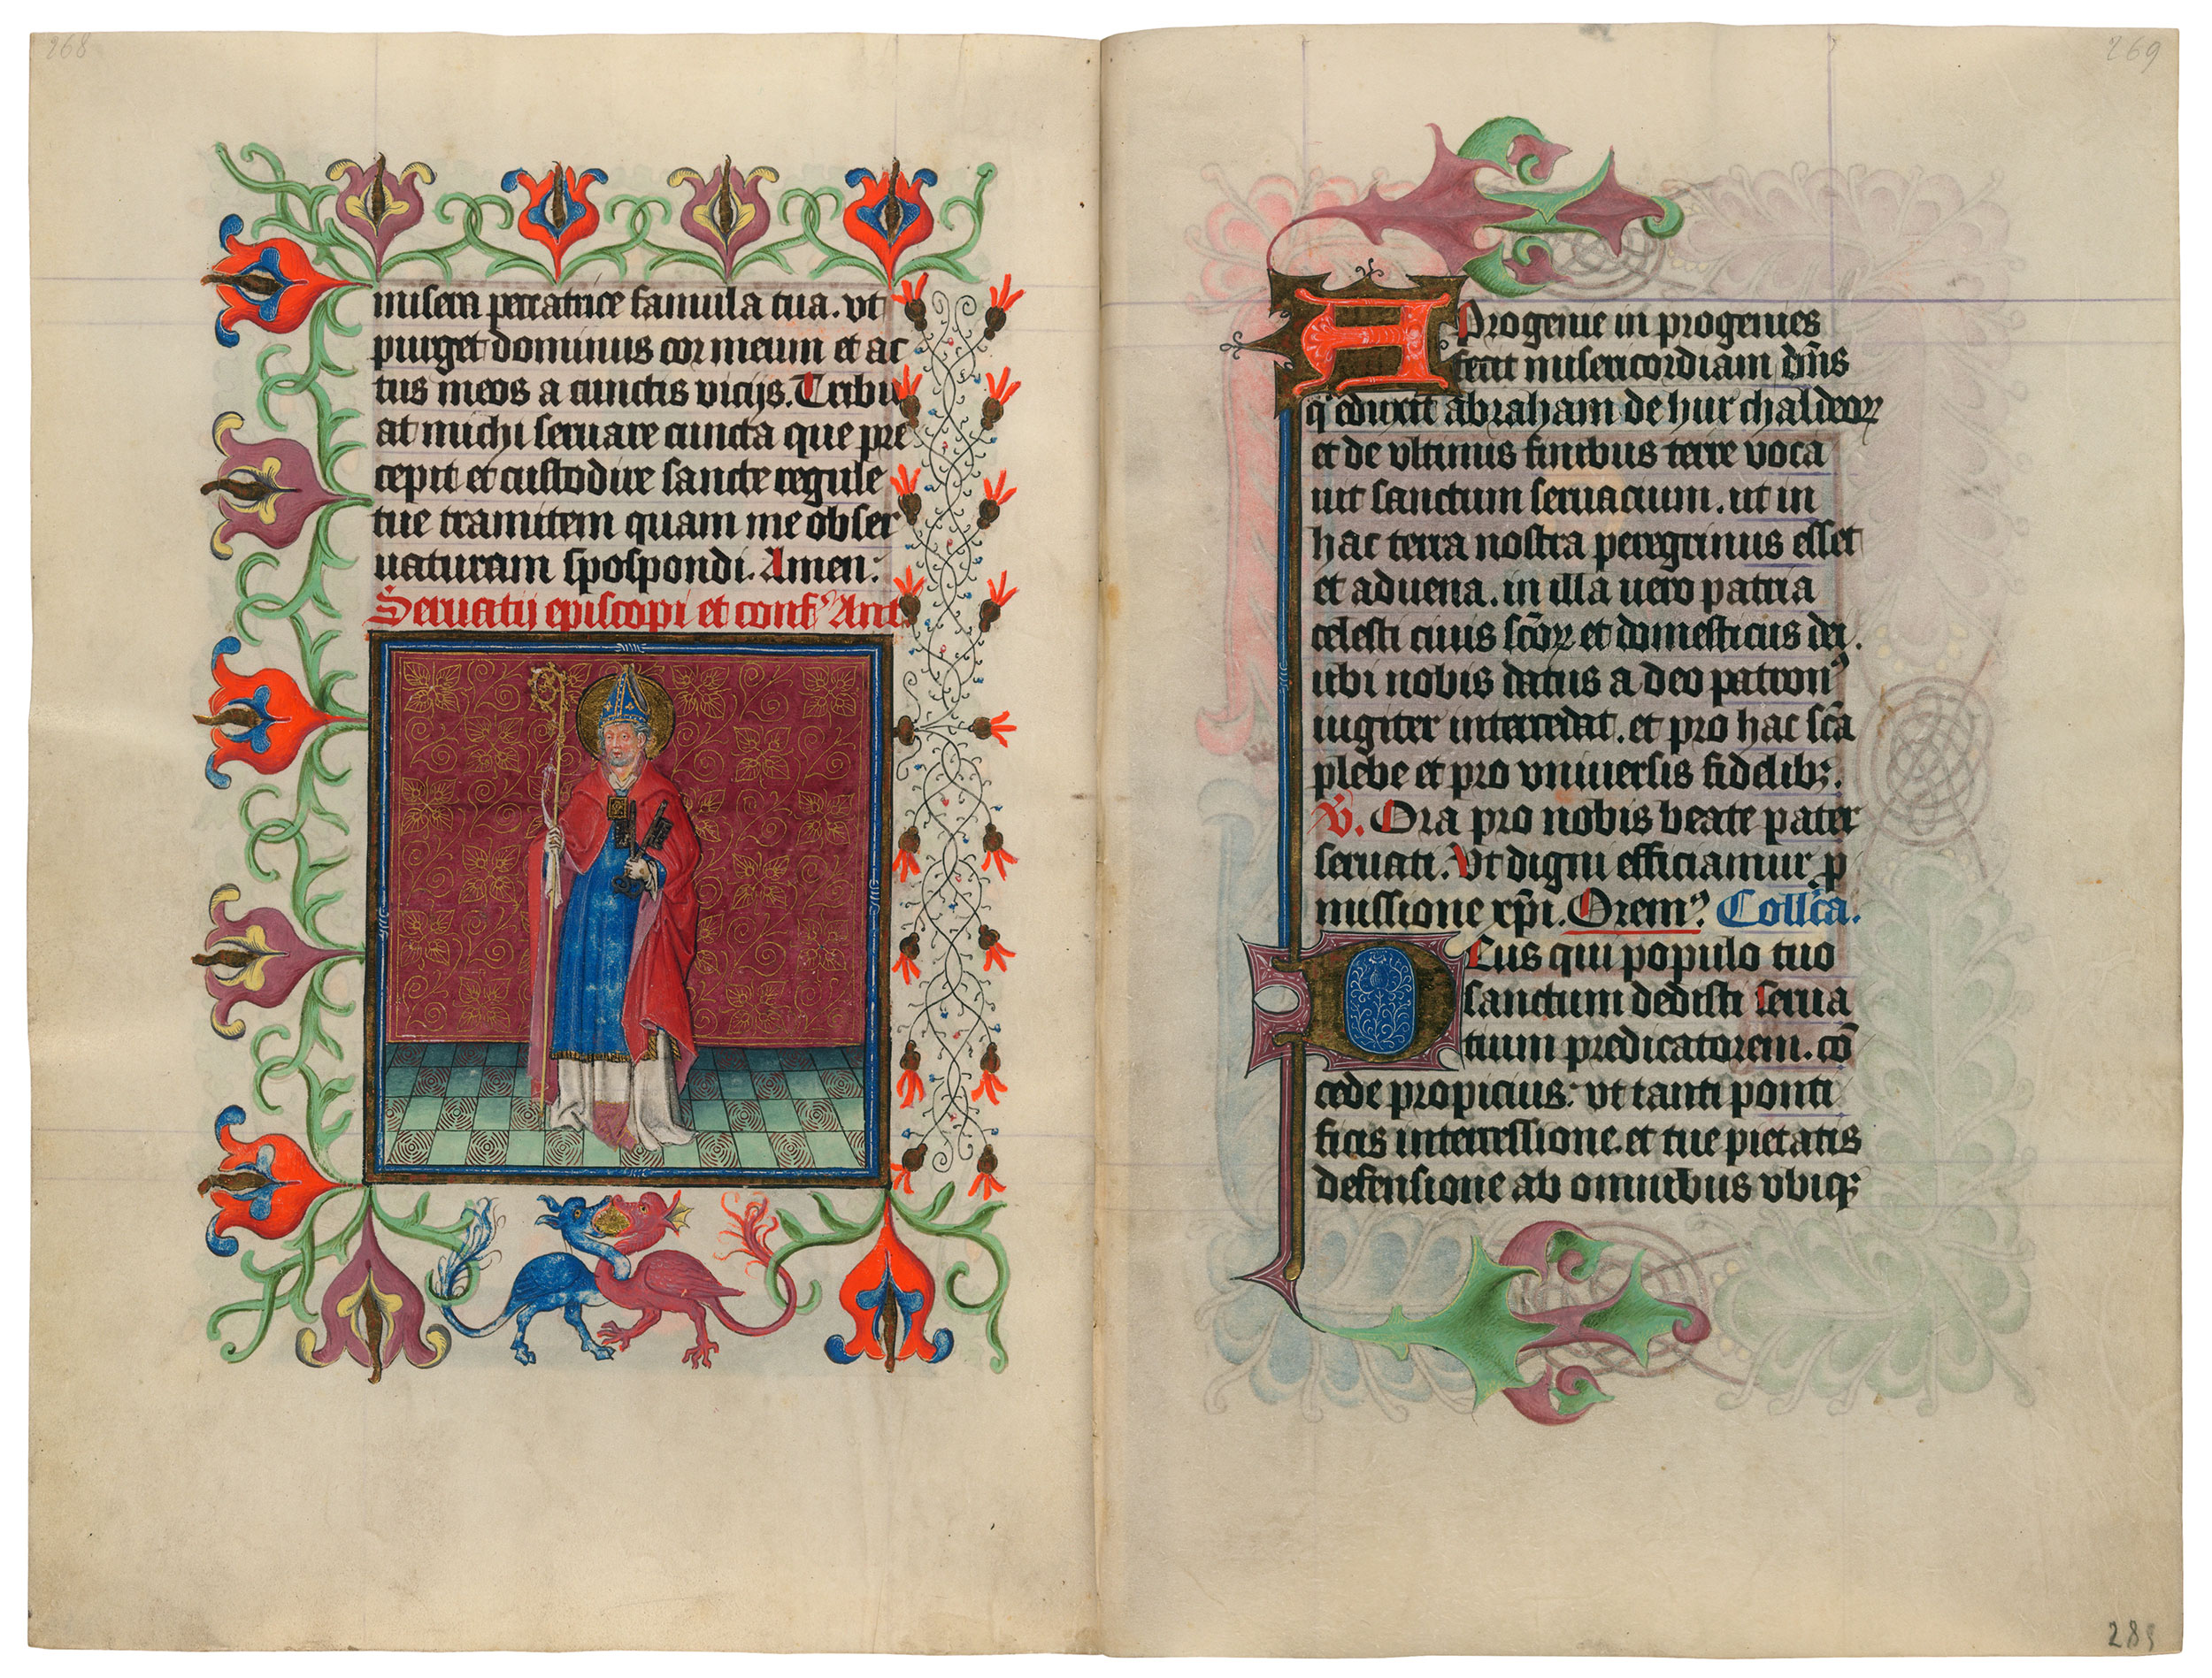 268
misera peccatrice famula tua. vt
purget dominus cor meum et ac
tus meos a cunctis vicijs. Tribu
at michi seruare cuncta que pre
cepit et custodire sancte regule
tue tramitem quam me obser
uaturam spospondi. Amen:
Seruatij episcopi et conf᾽ Ant
269
A Progenie in progenies
fecit misericordiam dn̄s
q̄ eduxit abraham de hur chaldeoꝝ
et de vltimis finibus terre voca
uit sanctum seruacium. ut in
hac terra nostra peregrinus esset
et aduena. in illa uero patria
celesti ciuis sc̄oꝝ et domesticus dei.
ubi nobis datus a deo patron᾽
iugiter intercedat. et pro hac sc̄a
plebe et pro vniuersis fidelib;.
V̄. Ora pro nobis beate pater
seruati. Vt digni efficiamur ꝓ
missione xp̄i. Orem᾽. Coll̄ca.
DEus qui populo tuo
sanctum dedisti serua
tium predicatorem. cō
cede propicius: vt tanti ponti
ficis intercessione. et tue pietatis
defensione ab omnibus vbiq;
285